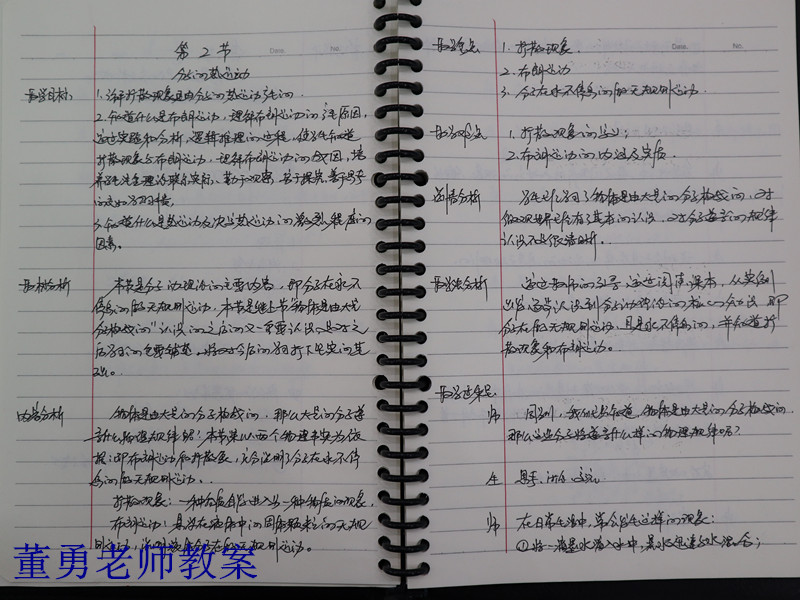 第2节
分子的热运动
教学目标:
1. 理解扩散现象是由分子的热运动产生的.
2. 知道什么是布朗运动, 理解布朗运动的产生原因,
通过实验和分析, 逻辑推理的过程, 使学生知道
扩散现象与布朗运动, 理解布朗运动的成因, 培
3. 知道什么是热运动及决定热运动的激烈程度的
因素。
教材分析
本节是分子动理论的主要内容, 即分子在永不
停息的做无规则运动, 本节是继上节"物体是由大量
分子构成的"认识的之后的又一重要认识
后学习的重要铺垫, 将对今后的学习打下坚实的基
础。
内容分析
物体是由大量的分子构成的, 那么大量的分子遵
守什么物理规律呢? 本节课以两个物理事实为依
据: 即布朗运动和扩散现象, 充分说明了分子在永不停
息的做无规则运动。
扩散现象: 一种物质自发进入另一种物质的现象,
布朗运动: 悬浮在液体中的固体颗粒的无规
则运动,
教学重点
1. 扩散现象.
2. 布朗运动
3. 分子在永不停息的做无规则运动.
教学难点
1. 扩散现象的定义;
2. 布朗运动的内涵及实质.
学情分析
学生已学习了物体是由大量的分子构成的, 对
微观世界已经有了基本的认识, 对分子遵守的规律
认识不是很清晰.
教学法分析
通过教师的引导, 通过阅读课本, 从实例
分子在做无规则运动, 且是永不停息的, 并知道扩
散现象和布朗运动。
教学过程
师
同学们, 我们已经知道, 物体是由大量的分子构成的
那么这些分子将遵守什么样的物理规律呢?
生
思考, 讨论, 交流
师
在日常生活中, 常会发生这样的现象:
①将一滴墨水滴入水中, 墨水迅速与水混合;
Date.
No.
Date.
No.
董勇老师教案